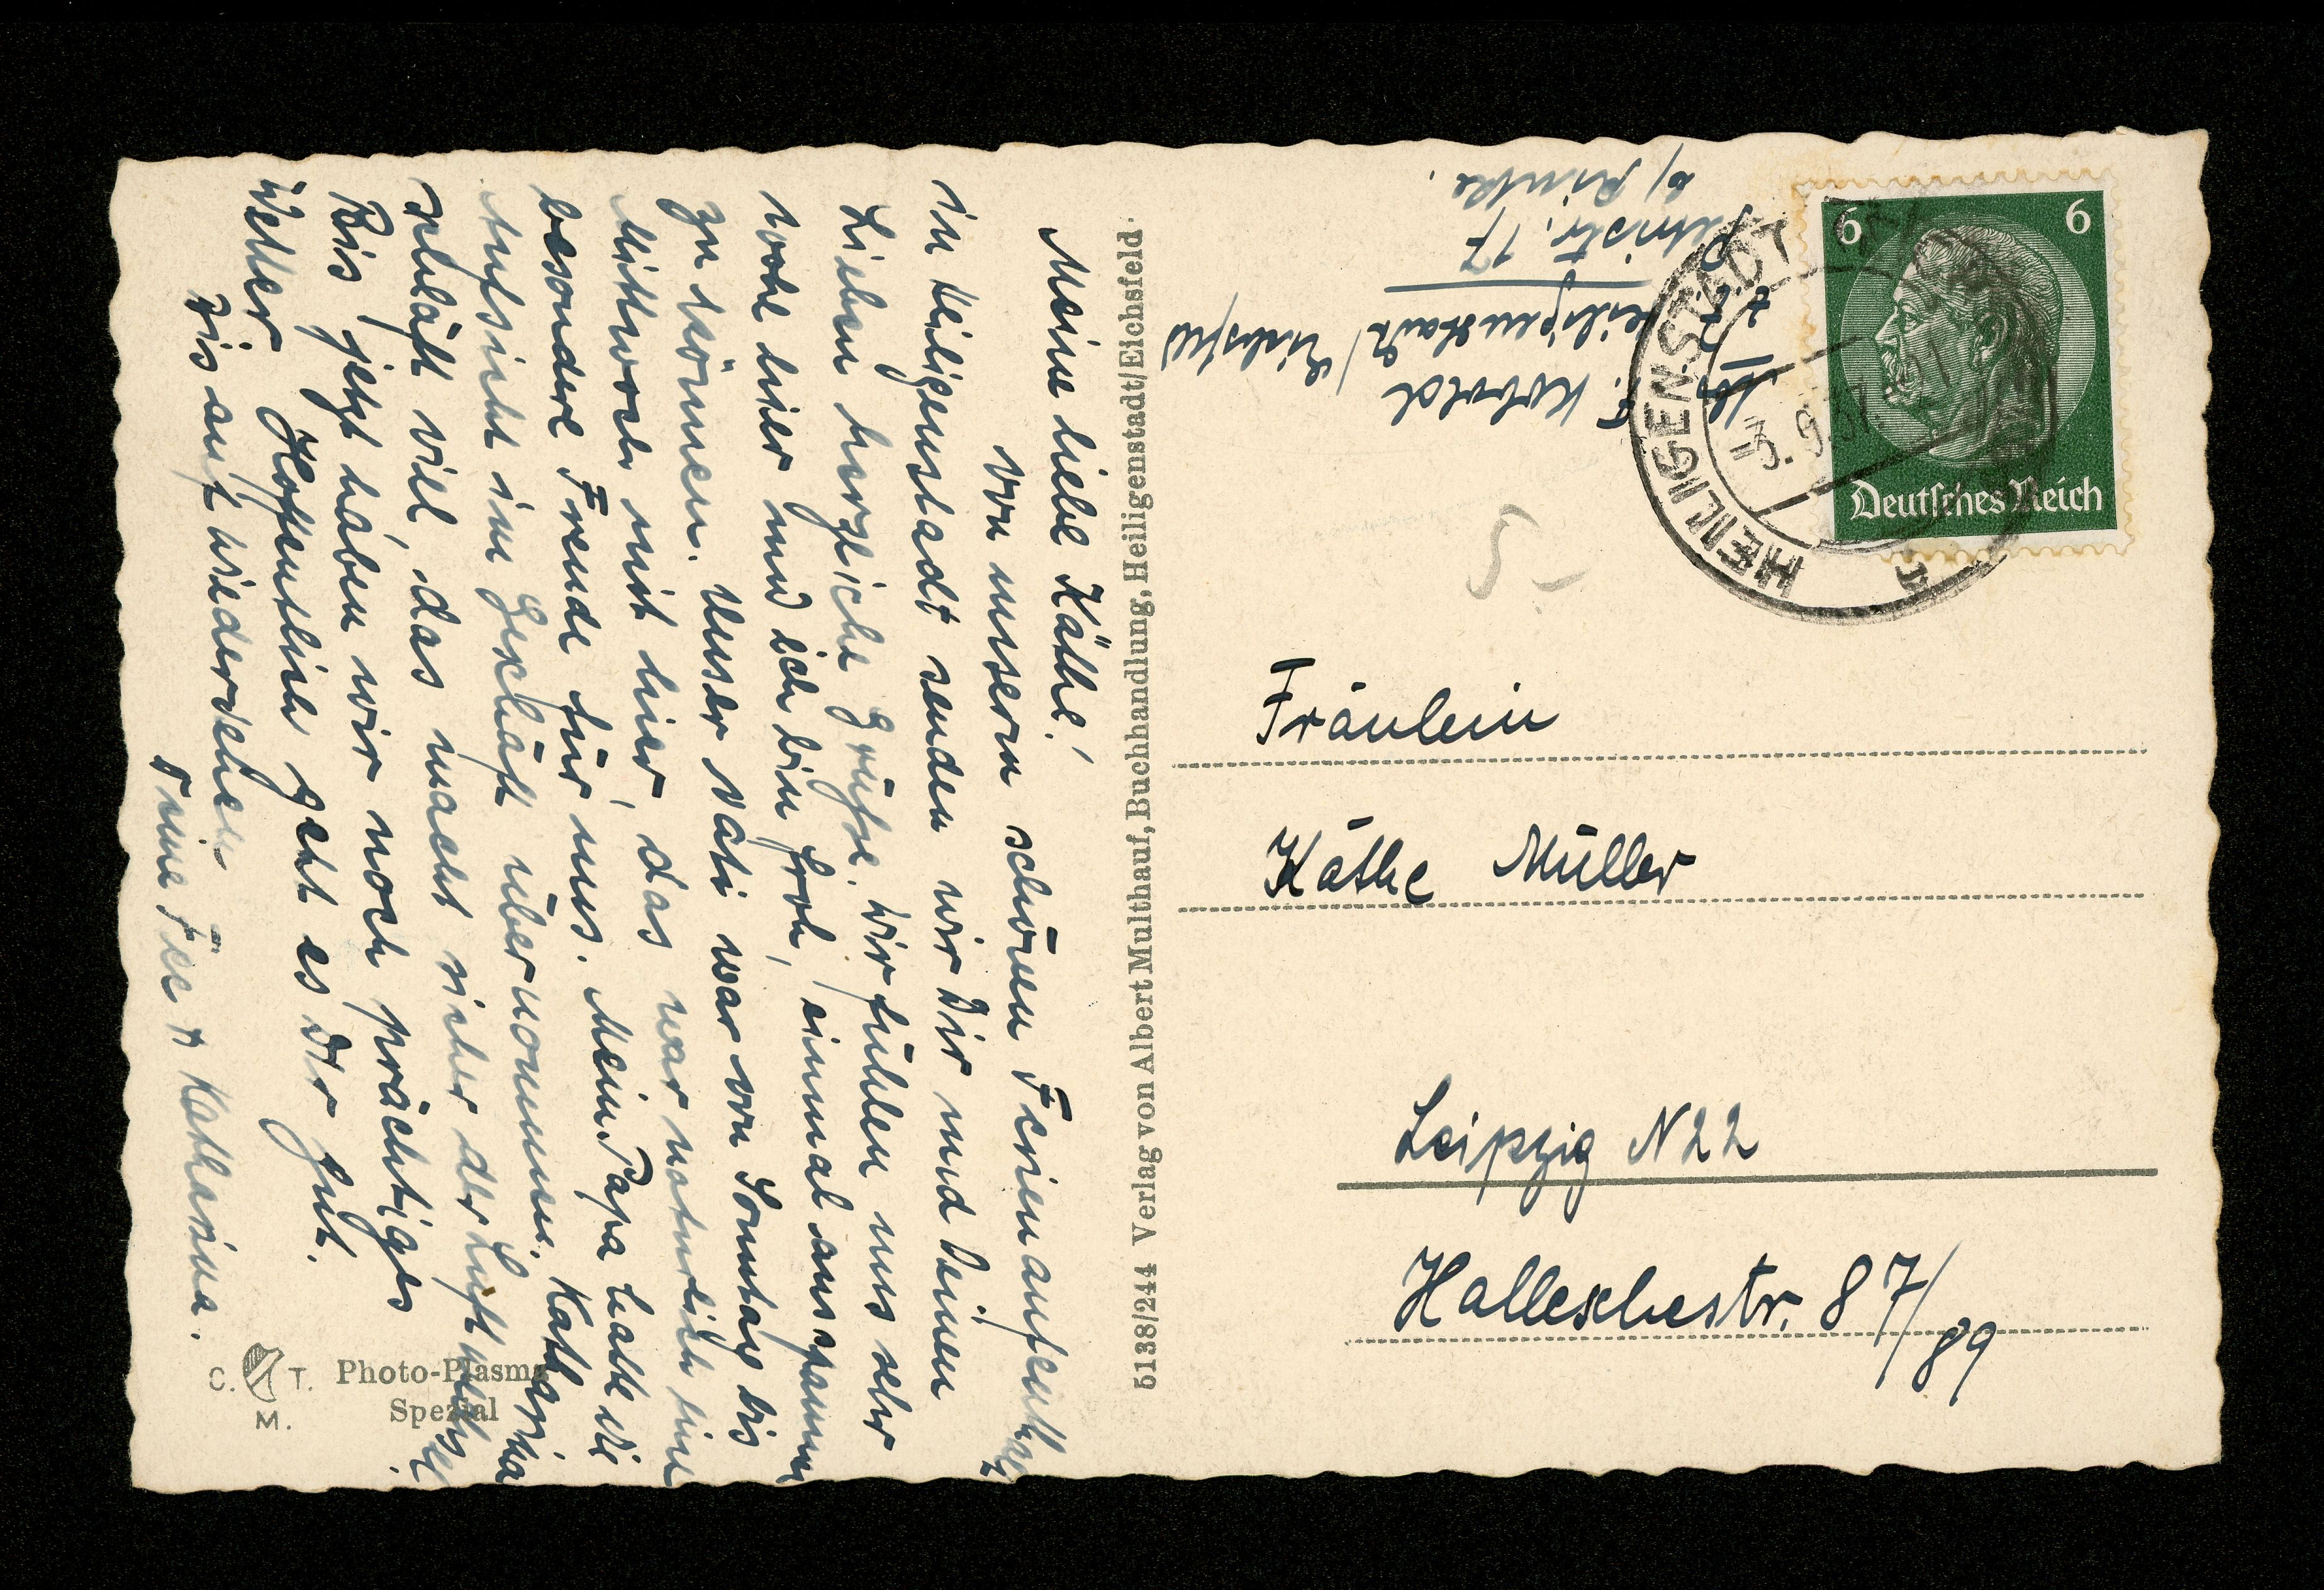 Meine liebe Käthe!
Von unserm schönen Ferienaufenthalt
in Heiligenstadt senden wir Dir und Deinen
Lieben herzliche Grüße. Wir fühlen uns sehr
wohl hier und ich bin froh, einmal ausspannen
zu können. Unser Vati war von Sonntag bis
Mittwoch mit hier, das war natürlich eine
besondere Freude für uns. Mein Papa hatte die
Aufsicht im Geschäft übernommen. Katharina
schläft viel, das macht sicher der Luftwechsel.
Bis jetzt haben wir noch prächtiges
Wetter. Hoffentlich geht es Dir gut.
Bis auf Wiedersehen
Deine u. Katharina.
C. T. M.
Photo-Plasma
Spezial
5138/244 Verlag von Albert Multhauf, Buchhandlung, Heiligenstadt/Eichsfeld.
Kobold
Heiligenstadt / Eichsfeld
17
b/ Rinke.
HEILIGENSTADT
3.9.37
6 6
Deutsches Reich
Fräulein
Käthe Müller
Leipzig N22
Hallischestr. 87/89